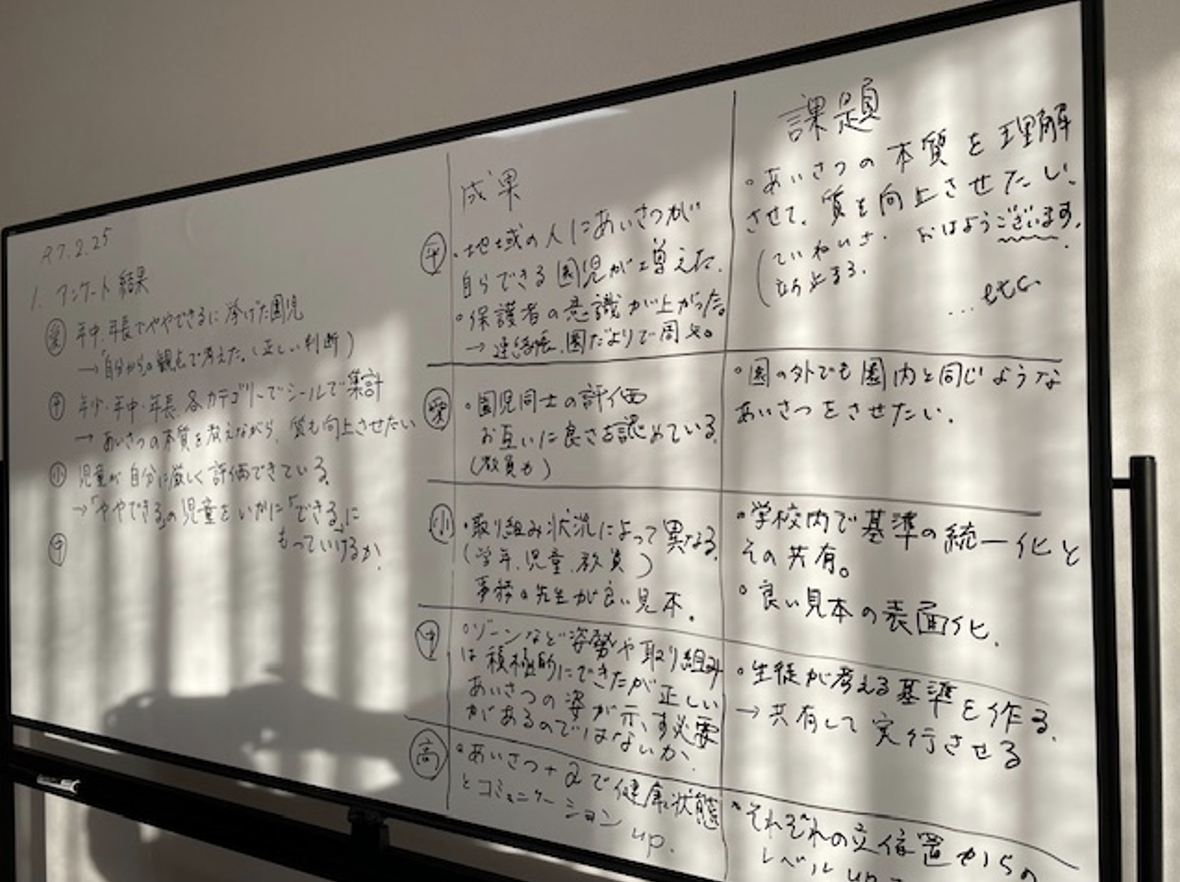 R7.2.25
1. アンケート結果
年中、年長でややできるに挙げた園児
→「自分から」の観点で考えた。(正しい判断)
年少・年中・年長、各カテゴリーでシールで集計
→ あいさつの本質を教えながら、質も向上させたい
小 児童が自分に厳しく評価できている。
→「ややできる」の児童をいかに「できる」に
もっていけるか。
中
成果
平 ・地域の人にあいさつが
自らできる園児が増えた。
・保護者の意識が上がった。
→ 連絡帳、園だよりで周知。
・園児同士の評価
お互いに良さを認めている。
(教員も)
小 ・取り組み状況によって異なる。
(学年、児童、教員)
事務の先生が良い見本。
中 ・ゾーンなど姿勢や取り組み
は積極的にできたが正しい
あいさつの姿が示す必要
があるのではないか。
高 ・あいさつ+αで健康状態
とコミュニケーション
up.
課題
・あいさつの本質を理解
させて、質を向上させたい。
(ていねいさ、おはようございます。
立ち止まる。
...etc
・園の外でも園内と同じような
あいさつをさせたい。
・学校内で基準の統一化と
その共有。
・良い見本の表面化。
・生徒が考える基準を作る。
→ 共有して実行させる
・それぞれの立位置からの
レベルup